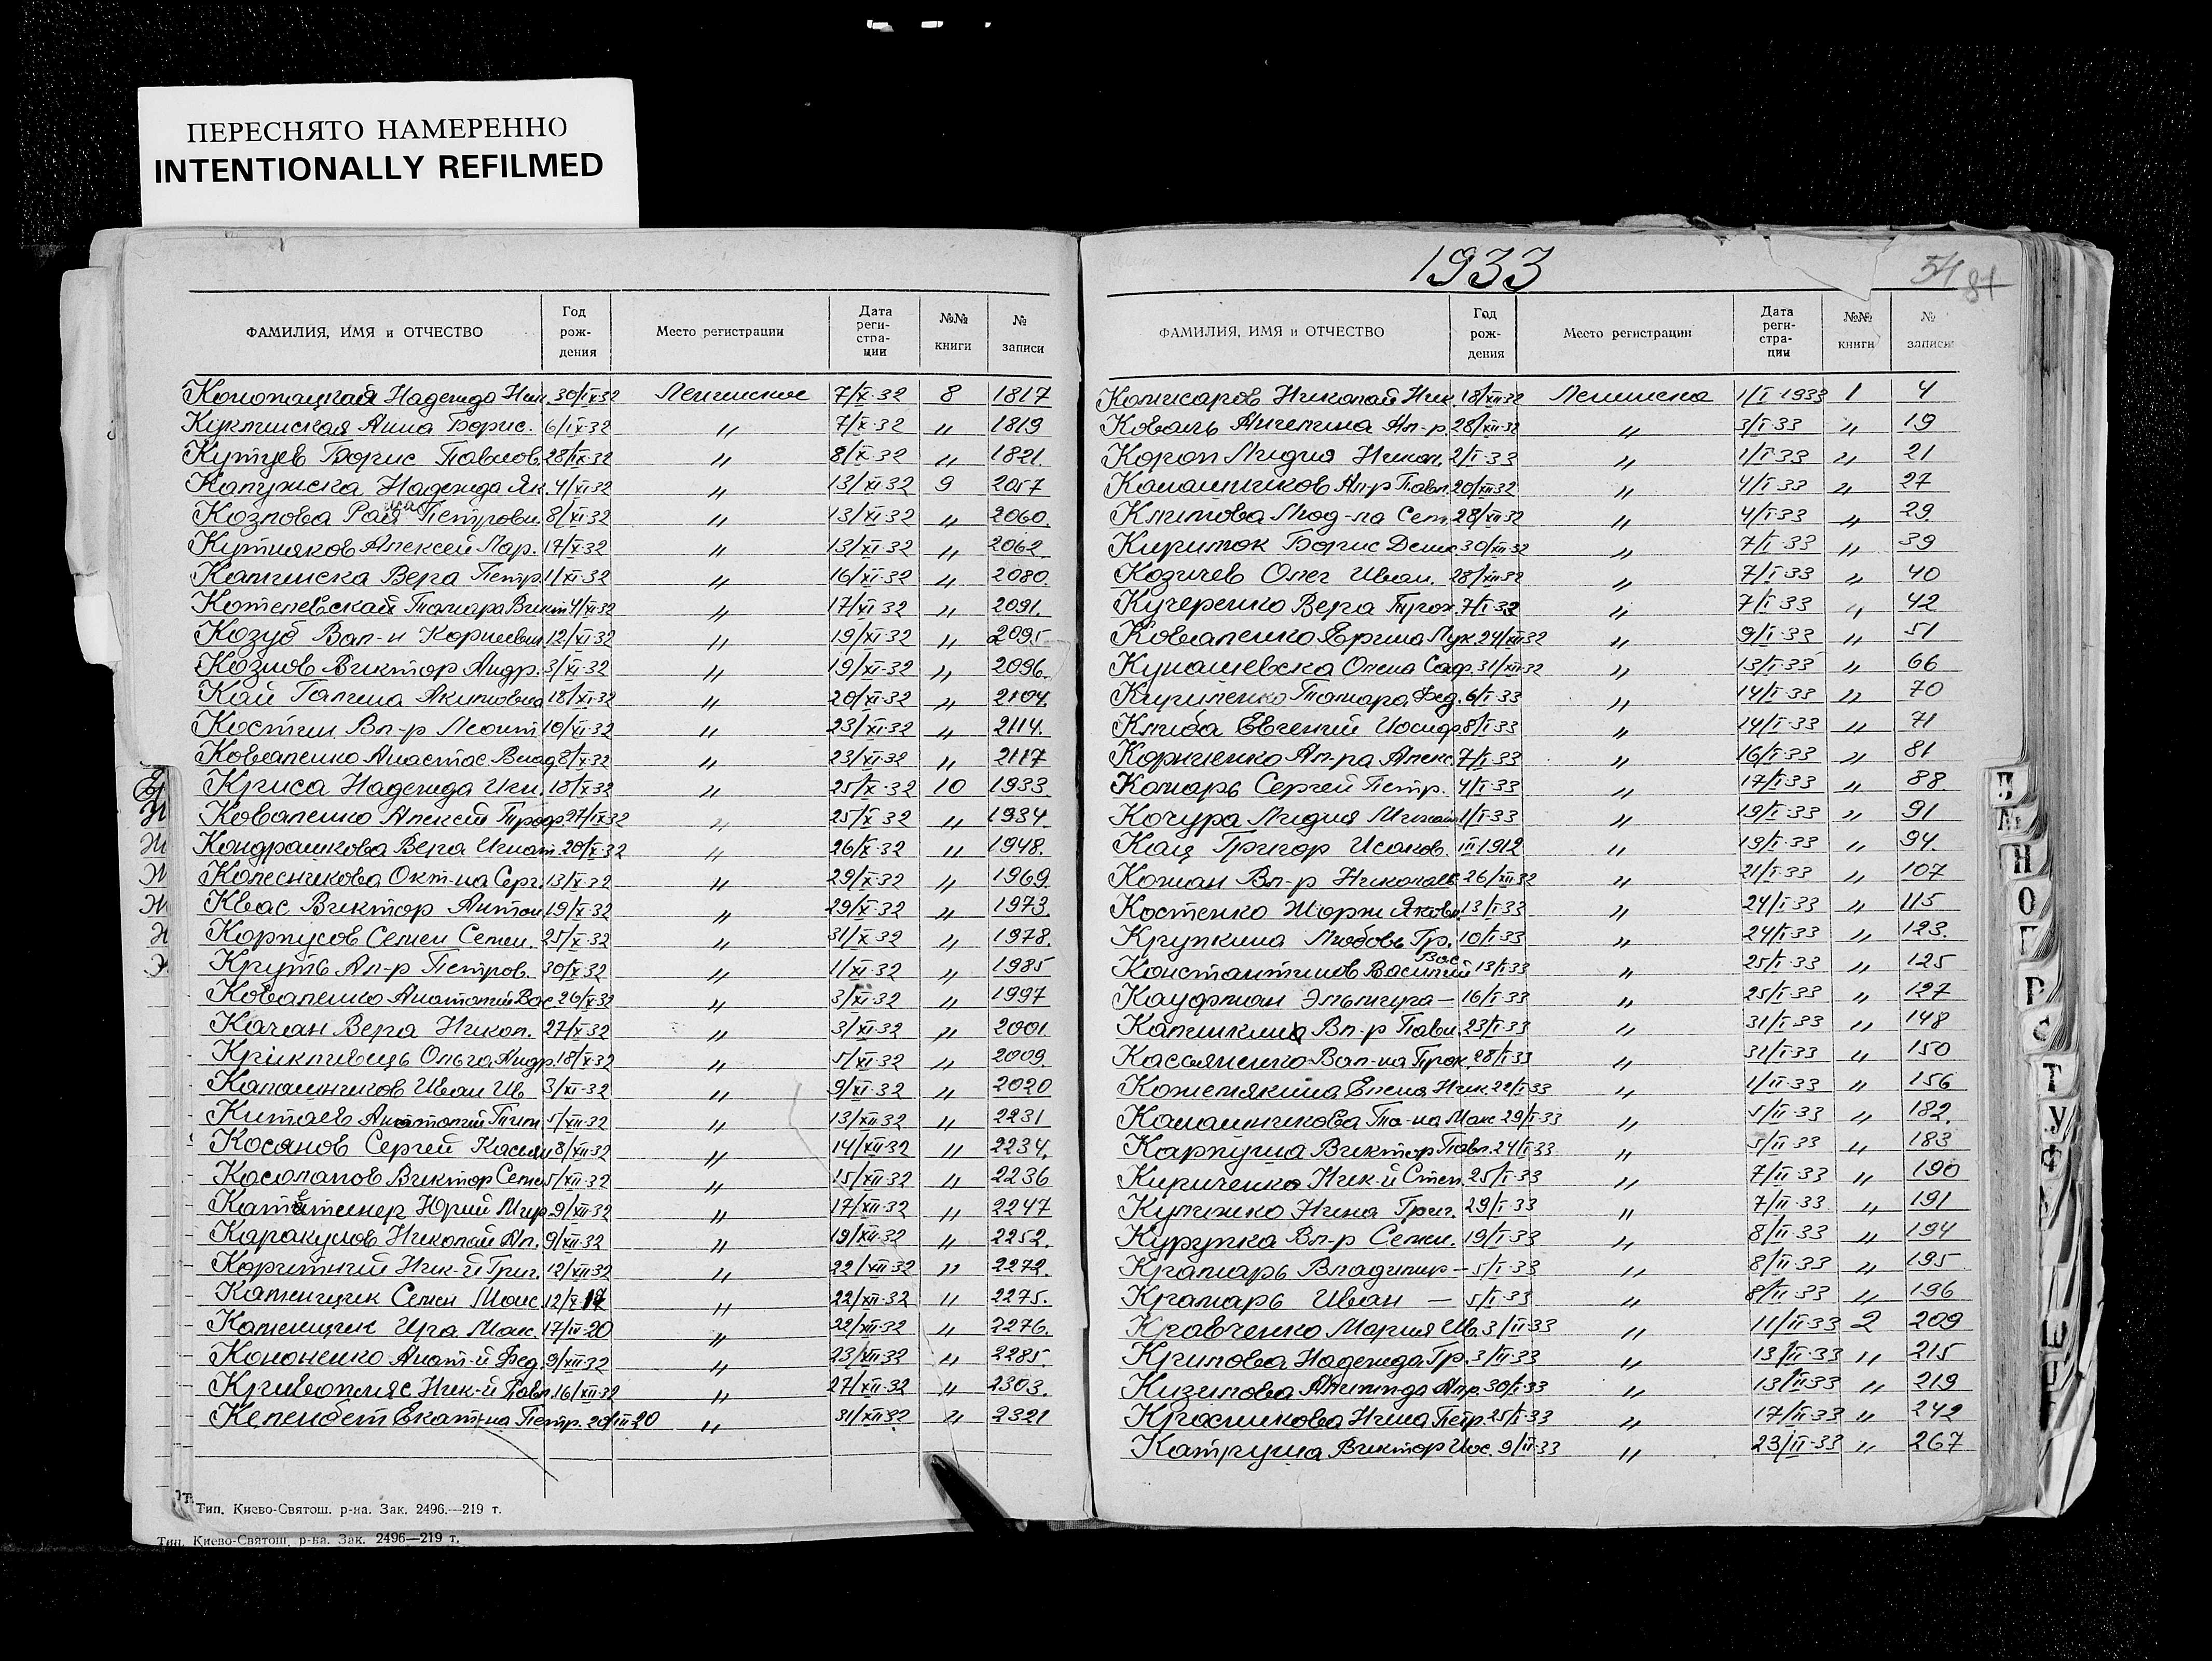 ПЕРЕСНЯТО НАМЕРЕННО
INTENTIONALLY REFILMED
ФАМИЛИЯ, ИМЯ и ОТЧЕСТВО Год рождения Место регистрации Дата регистрации №№ книги № записи
Конопацкая Надежда Ник. 30/IX-32 Ленинское 7/X-32 8 1817
Куклинская Анна Борис. 6/IX-32 〃 7/X-32 〃 1819
Кутцев Борис Павлов. 28/IX-32 〃 8/X-32 〃 1821.
Капужска Надежда Як. 4/XI-32 〃 13/XI-32 9 2057
Козлова Рая Петровн. 8/XI-32 〃 13/XI-32 〃 2060.
Кутняков Алексей Лар. 17/X-32 〃 13/XI-32 〃 2062
Калинска Вера Петр. 1/XI-32 〃 16/XI-32 〃 2080.
Котелевская Тамара Викт. 4/XI-32 〃 17/XI-32 〃 2091.
Козуб Вал-н Корнеевич 12/XI-32 〃 19/XI-32 〃 2095
Козлов Виктор Андр. 3/XI-32 〃 19/XI-32 〃 2096.
Кай Галина Акимовна 18/XI-32 〃 20/XI-32 〃 2104.
Костин Вл-р Леонт 10/XI-32 〃 23/XI-32 〃 2114.
Коваленко Анастас. Влад. 8/X-32 〃 23/XI-32 〃 2117
Криса Надежда Ин. 18/X-32 〃 25/X-32 10 1933.
Коваленко Алексей Проф. 27/IX-32 〃 25/X-32 〃 1934.
Кондрашкова Вера Игнат. 20/X-32 〃 26/X-32 〃 1948.
Колесникова Окт-на Серг. 13/X-32 〃 29/X-32 〃 1969.
Квас Виктор Антон 19/X-32 〃 29/X-32 〃 1973.
Корпусов Семен Семен. 25/X-32 〃 31/X-32 〃 1978.
Круть Ал-р Петров. 30/X-32 〃 1/XI-32 〃 1985
Коваленко Анатолий Вас. 26/X-32 〃 3/XI-32 〃 1997
Качан Вера Никол. 27/X-32 〃 3/XI-32 〃 2001.
Крикливець Ольга Андр. 18/X-32 〃 5/XI-32 〃 2009.
Калашников Иван Ив 3/XI-32 〃 9/XI-32 〃 2020
Китаев Анатолий Тим. 5/XII-32 〃 13/XII-32 〃 2231
Косянов Сергей Касьян 8/XII-32 〃 14/XII-32 〃 2234.
Косолапов Виктор Семен 5/XII-32 〃 15/XII-32 〃 2236
Юрий Мир. 9/XII-32 〃 17/XII-32 〃 2247
Каракулов Николай Ал. 9/XII-32 〃 19/XII-32 〃 2252.
Коритний Ник-й Григ. 12/XII-32 〃 22/XII-32 〃 2272.
Каменщик Семен Моис. 12/X-17 〃 22/XII-32 〃 2275.
Каменщик Ира Моис. 17/IV-20 〃 22/XII-32 〃 2276.
Кононенко Анат-й Фед. 9/XII-32 〃 23/XII-32 〃 2285.
Кривопляс Ник-й Павл. 16/XII-32 〃 27/XII-32 〃 2303.
Келембет Екат-на Петр. 20/III-20 〃 31/XII-32 〃 2321
Тип. Киево-Святош. р-на. Зак. 2496.—219 т.
Тип. Киево-Святош. р-на. Зак. 2496—219 т.
1933
54 81
ФАМИЛИЯ, ИМЯ и ОТЧЕСТВО Год рождения Место регистрации Дата регистрации №№ книги № записи
Комисаров Николай Ник. 18/XII-32 Ленинска 1/I 1933 1 4
Коваль Ангелина Ал-р. 28/XII-32 〃 3/I-33 〃 19
Короп Лидия Никол. 2/I-33 〃 1/I-33 〃 21
Калашников Ал-р Павл. 20/XII-32 〃 4/I-33 〃 27
Климова Люд-ла Сем. 28/XII-32 〃 4/I-33 〃 29.
Киримок Борис Демь. 30/XII-32 〃 7/I-33 〃 39
Козичев Олег Иван. 28/XII-32 〃 7/I-33 〃 40
Кучеренко Вера Трох. 7/I-32 〃 7/I-33 〃 42
Коваленко Ернна Лук. 24/XII-32 〃 9/I-33 〃 51
Кунашевска Олена Саф. 31/XII-32 〃 13/I-33 〃 66
Кириленко Тамара Фед. 6/I-33 〃 14/I-33 〃 70
Клиба Евгений Иосиф. 8/I-33 〃 14/I-33 〃 71
Корниенко Ал-ра Алекс. 7/I-33 〃 16/I-33 〃 81
Комарь Сергей Петр. 4/I-33 〃 17/I-33 〃 88.
Кочура Лидия Михайл. 1/I-33 〃 19/I-33 〃 91
Кац Григор Исаков. III 1912 〃 19/I-33 〃 94.
Коман Вл-р Николаев 26/XII-32 〃 21/I-33 〃 107
Костенко Жорж Яковл. 13/I-33 〃 24/I-33 〃 115
Крупкина Любовь Гр. 10/I-33 〃 24/I-33 〃 123.
Константинов Василий Вас. 13/I-33 〃 25/I-33 〃 125
Кауфман Эльмира — 16/I-33 〃 25/I-33 〃 127
Капишкина Вл-р Павл. 23/I-33 〃 31/I-33 〃 148
Кассьяненко Вал-на Прок. 28/I-33 〃 31/I-33 〃 150
Кожемякина Елена Ник. 22/I-33 〃 1/II-33 〃 156
Калашникова Та-на Макс 29/I-33 〃 5/II-33 〃 182.
Карпуша Виктор Павл. 24/I-33 〃 5/II-33 〃 183
Кириченко Ник-й Степ. 25/I-33 〃 7/II-33 〃 190
Кулишко Нина Григ. 29/I-33 〃 7/II-33 〃 191
Курупка Вл-р Семен. 19/I-33 〃 8/II-33 〃 194
Крамарь Владимир — 5/I-33 〃 8/II-33 〃 195
Крамарь Иван — 5/I-33 〃 8/II-33 〃 196
Кравченко Мария Ив. 3/II-33 〃 11/II-33 2 209
Крилова Надежда Гр. 3/II-33 〃 13/II-33 〃 215
Кизилова Алр. 30/I-33 〃 13/II-33 〃 219
Красникова Нина Петр. 25/I-33 〃 17/II-33 〃 242
Катруша Виктор Иос. 9/II-33 〃 23/II-33 〃 267
П
М
Н
О
П
Р
С
Т
У
Ф
Ш